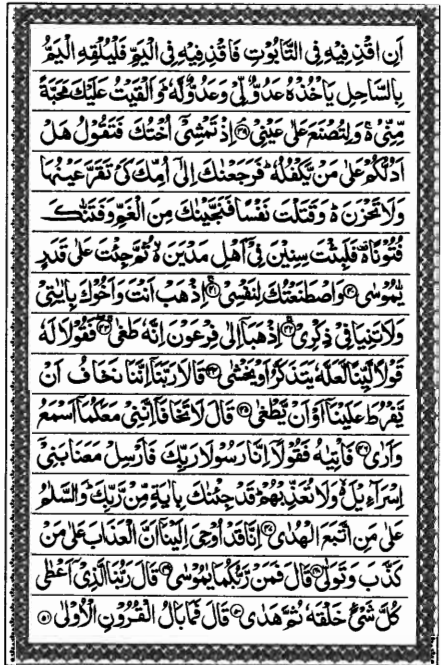 اَنِ اقْذِفِيْهِ فِي التَّابُوْتِ فَاقْذِفِيْهِ فِي الْيَمِّ فَلْيُلْقِهِ الْيَمُّ
بِالسَّاحِلِ يَاْخُذْهُ عَدُوٌّ لِّيْ وَعَدُوٌّ لَّهٗ ؕ وَاَلْقَيْتُ عَلَيْكَ مَحَبَّةً
مِّنِّيْ ۬ۚ وَلِتُصْنَعَ عَلٰى عَيْنِيْ ۘ﴿۳۹﴾ اِذْ تَمْشِيْٓ اُخْتُكَ فَتَقُوْلُ هَلْ
اَدُلُّكُمْ عَلٰى مَنْ يَّكْفُلُهٗ ؕ فَرَجَعْنٰكَ اِلٰٓى اُمِّكَ كَيْ تَقَرَّ عَيْنُهَا
وَلَا تَحْزَنَ ۬ؕ وَقَتَلْتَ نَفْسًا فَنَجَّيْنٰكَ مِنَ الْغَمِّ وَفَتَنّٰكَ
فُتُوْنًا ۬۟ فَلَبِثْتَ سِنِيْنَ فِيْٓ اَهْلِ مَدْيَنَ ۬ۙ ثُمَّ جِئْتَ عَلٰى قَدَرٍ
يّٰمُوْسٰى ﴿۴۰﴾ وَاصْطَنَعْتُكَ لِنَفْسِيْ ۚ﴿۴۱﴾ اِذْهَبْ اَنْتَ وَاَخُوْكَ بِاٰيٰتِيْ
وَلَا تَنِيَا فِيْ ذِكْرِيْ ۚ﴿۴۲﴾ اِذْهَبَآ اِلٰى فِرْعَوْنَ اِنَّهٗ طَغٰى ۚۖ﴿۴۳﴾ فَقُوْلَا لَهٗ
قَوْلًا لَّيِّنًا لَّعَلَّهٗ يَتَذَكَّرُ اَوْ يَخْشٰى ﴿۴۴﴾ قَالَا رَبَّنَآ اِنَّنَا نَخَافُ اَنْ
يَّفْرُطَ عَلَيْنَآ اَوْ اَنْ يَّطْغٰى ﴿۴۵﴾ قَالَ لَا تَخَافَآ اِنَّنِيْ مَعَكُمَآ اَسْمَعُ
وَاَرٰى ﴿۴۶﴾ فَاْتِيٰهُ فَقُوْلَآ اِنَّا رَسُوْلَا رَبِّكَ فَاَرْسِلْ مَعَنَا بَنِيْٓ
اِسْرَآءِيْلَ ۬ۙ وَلَا تُعَذِّبْهُمْ ؕ قَدْ جِئْنٰكَ بِاٰيَةٍ مِّنْ رَّبِّكَ ؕ وَالسَّلٰمُ
عَلٰى مَنِ اتَّبَعَ الْهُدٰى ﴿۴۷﴾ اِنَّا قَدْ اُوْحِيَ اِلَيْنَآ اَنَّ الْعَذَابَ عَلٰى مَنْ
كَذَّبَ وَتَوَلّٰى ﴿۴۸﴾ قَالَ فَمَنْ رَّبُّكُمَا يٰمُوْسٰى ﴿۴۹﴾ قَالَ رَبُّنَا الَّذِيْٓ اَعْطٰى
كُلَّ شَيْءٍ خَلْقَهٗ ثُمَّ هَدٰى ﴿۵۰﴾ قَالَ فَمَا بَالُ الْقُرُوْنِ الْاُوْلٰى ﴿۵۱﴾